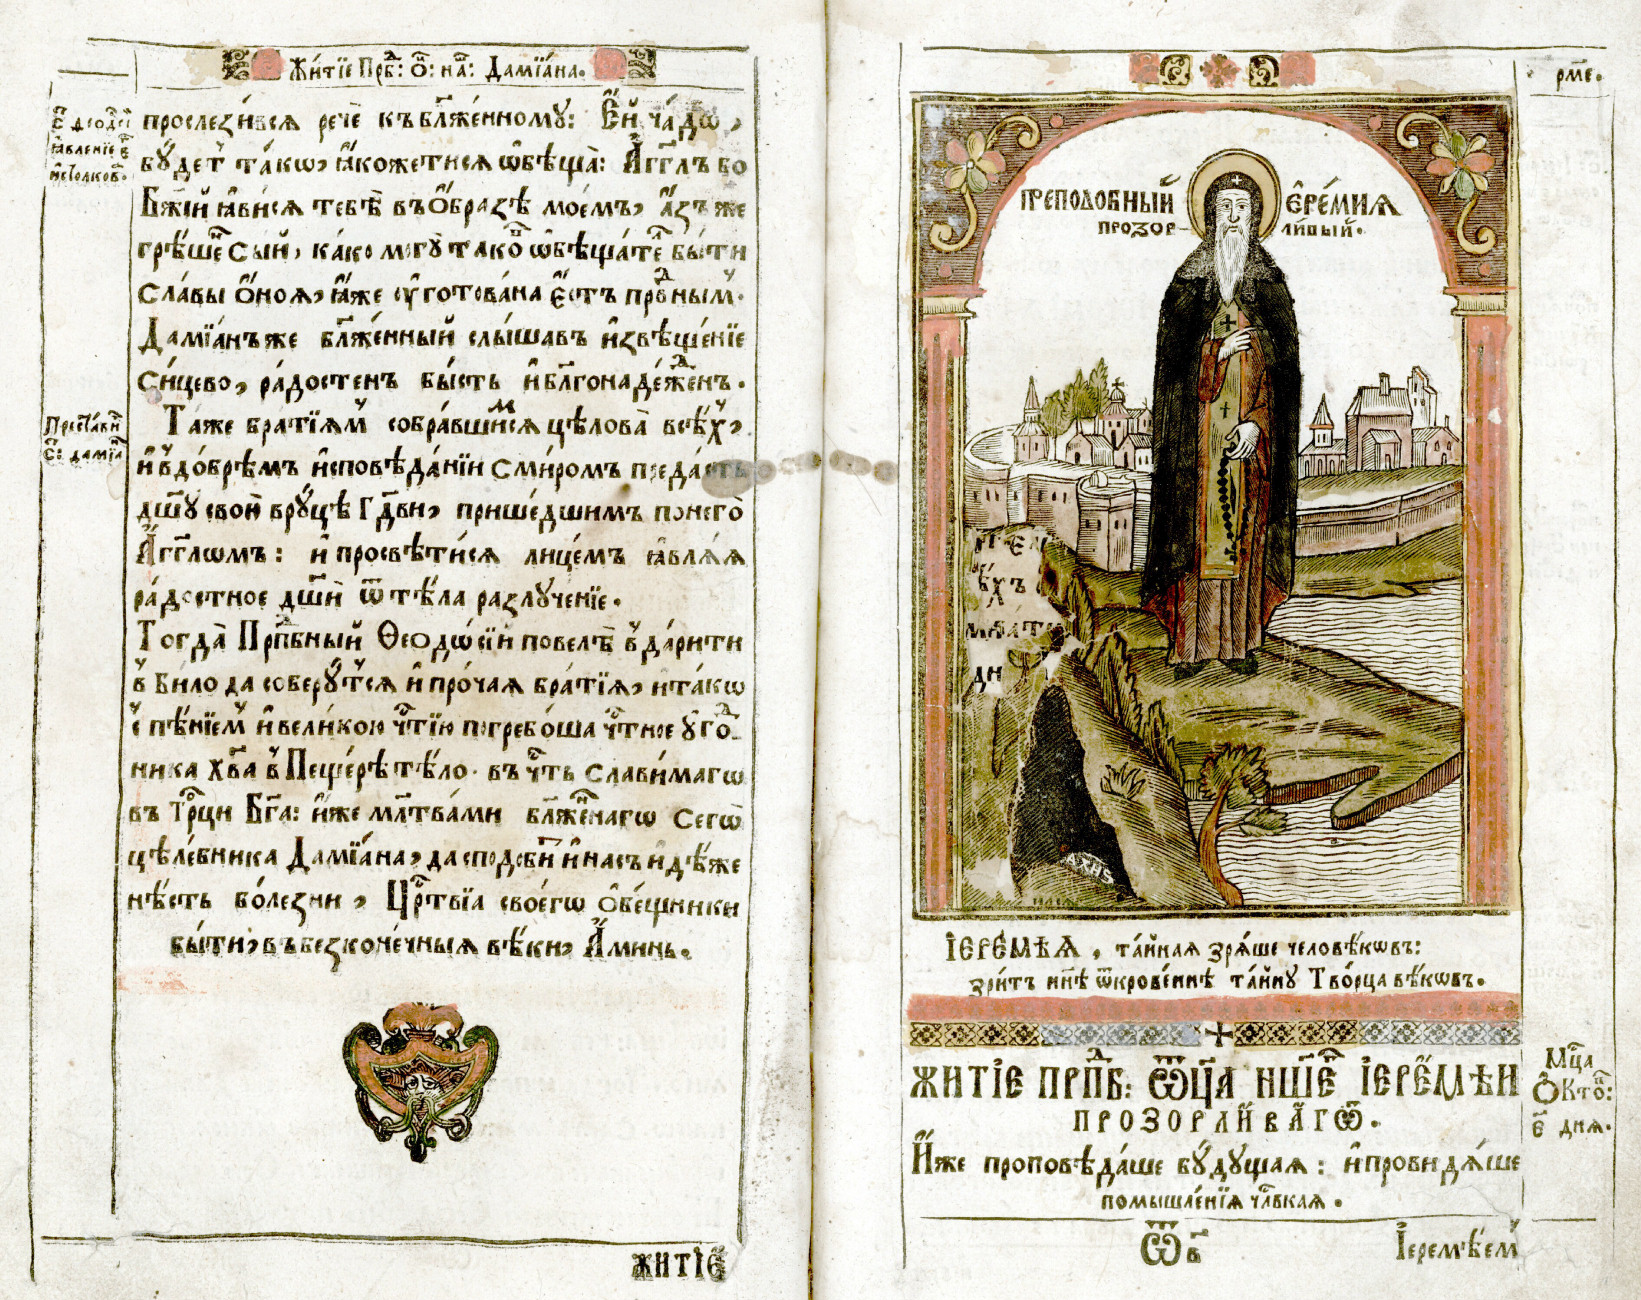 Житїе Прпⷣб: Ѻ: на: Дамїана.
Ѳеодосї
ꙗвленїе
прослезивсѧ рече къ бл҃женному: Ей чадѡ,
будетъ такѡ, ꙗкожетисѧ ѿвѣща: Агг҃лъ бо
Бж҃їй ꙗвисѧ тебѣ въ Образѣ моемъ, азъ же
грѣшенъ сый, како могу тако ѡбѣщателⷩ быти
славы ѻноѧ, ꙗже уготована естъ прпⷣбнымъ.
Дамїанъ же бл҃женный слышавъ извѣщенїе
сицево, радостенъ бысть и бл҃гонадеженъ.
Таже братїѧмъ собравшимсѧ цѣлова всѣхъ,
и въ добрѣмъ исповѣданїи смиромъ предастъ
дш҃у свою въ руцѣ Гдⷭ҇ви, пришедшимъ понего
Агг҃лѡмъ: и просвѣтисѧ лицемъ ꙗвлѧѧ
радостное дш҃и ѿ тѣла разлученїе.
Престави
С: дамїа
Тогда Прпⷣбный Ѳеодѡсїй повелѣ ударити
въ било да соберутсѧ и прочаѧ братїѧ, и такѡ
съ пѣнїемъ и великою чⷭ҇тїю погребоша чⷭ҇тное угоⷣ
ника Хв҃а въ Пещерѣ тѣло. въ чⷭ҇ть славимагѡ
въ Трⷪ҇ци Бг҃а: иже мл҃твами бл҃женнагѡ сегѡ
цѣлебника Дамїана, да сподоби и насъ идѣже
нѣсть болезни, Црⷭ҇твїѧ своегѡ Ѻбещники
быти, въ безконечныѧ вѣки, Аминь.
житїе
рме.
Преподобный Еремиѧ
прозор-ливый.
҂АХН҃Ѕ
илїѧ
Іеремѣѧ, тайнаѧ зрѧше человѣкѡвъ:
зритъ нн҃ѣ ѿкровеннѣ тайну Творца вѣкѡвъ.
Житїе Прпⷣб: ѿц҃а нш҃егѡ Іеремѣи
прозорливагѡ.
Мцⷭ҇а
Ѻктоⷡ:
е҃ днѧ.
Иже проповѣдаше будущаѧ: и провидѧше
помышленїѧ члв҃ᲂкаѧ.
Ѿв҃
Іеремѣемъ